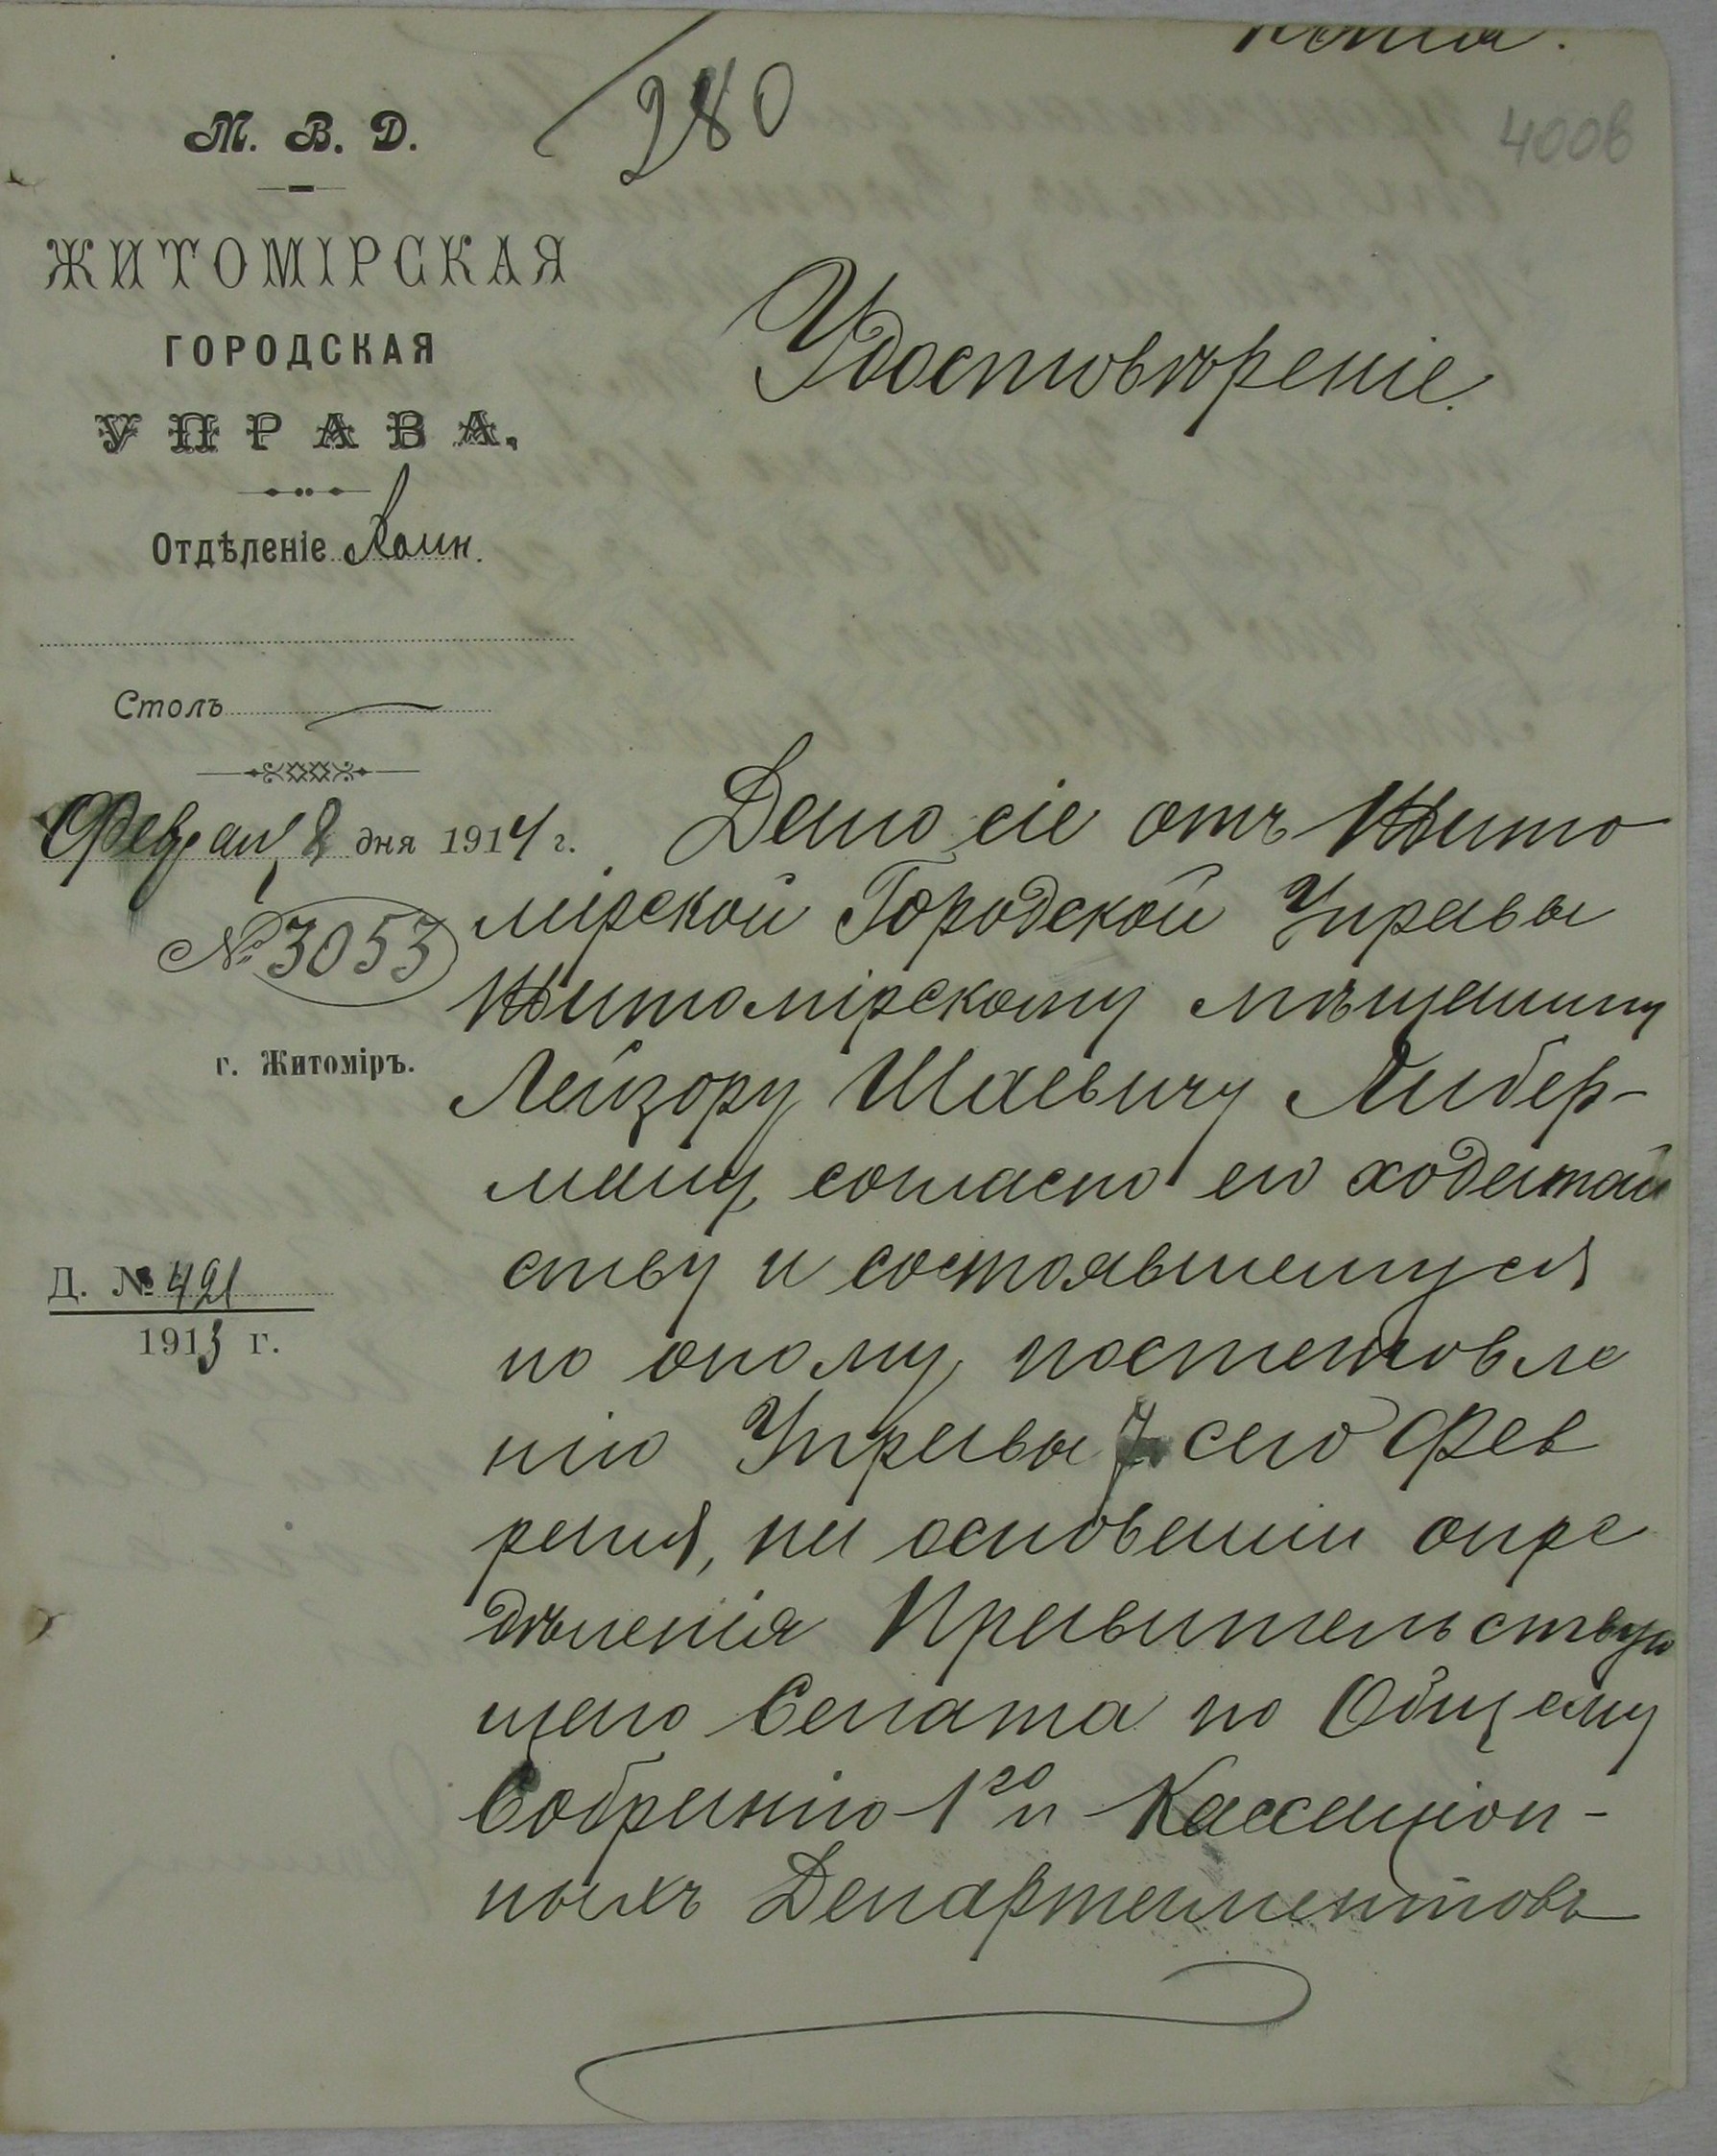 Копія.
280
400в
М. В. Д.
ЖИТОМІРСКАЯ
ГОРОДСКАЯ
УПРАВА.
Отдѣленіе
Столъ
Феврал 8 дня 1914 г.
№ 3053
г. Житоміръ.
Д. № 421
1913 г.
Удостовѣреніе.
Дано сіе отъ Жито
мірской Городской Управы
Житомірскому мѣщанину
Лейзору Шаевичу Либер-
ману, согласно его ходатай
ству и состоявшемуся
по оному, постановле
нію Управы 7 сего Фев
раля, на основаніи опре
дѣленія Правительствую
щаго Сената по Общему
Собранію 1го и Кассаціон-
ныхъ Департаментовъ